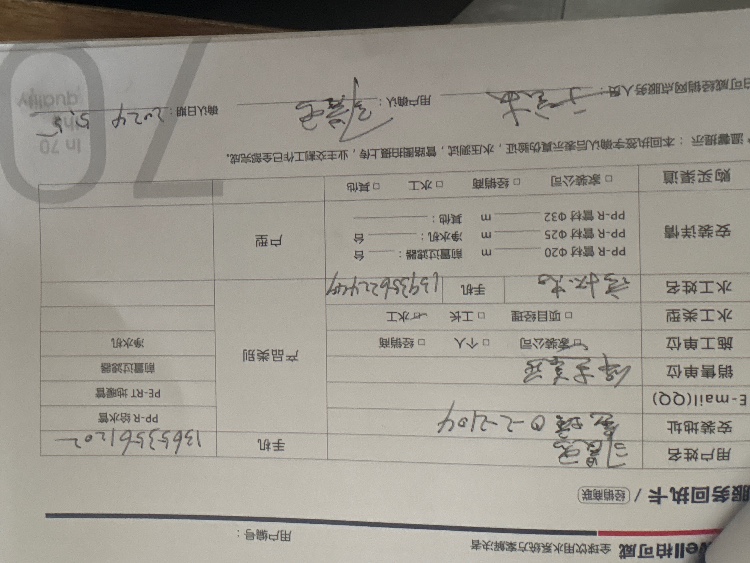 Well柏可威 全球饮用水系统方案解决者
用户编号：
服务回执卡 / 经销商联
用户姓名 手机 13653561202
安装地址 0-2-2104 PP-R 给水管
E-mail(QQ) PE-RT 地暖管
销售单位 前置过滤器
施工单位 □ 家装公司 □ 个人 □ 经销商 产品类别 净水机
水工类型 □ 项目经理 □ 工长 □ 水工
水工姓名 手机
安装详情 PP-R 管材 Φ20 m 前置过滤器： 台 户型
PP-R 管材 Φ25 m 净水机： 台
PP-R 管材 Φ32 m 其他：
购买渠道 □ 家装公司 □ 经销商 □ 水工 □ 其他
温馨提示：本回执签字确认后表示真伪验证，水压测试，管路图拍摄上传，业主交割工作已全部完成。
柏可威经销网点服务人员： 用户确认： 确认日期：2024 5.5
70
In 70
quality